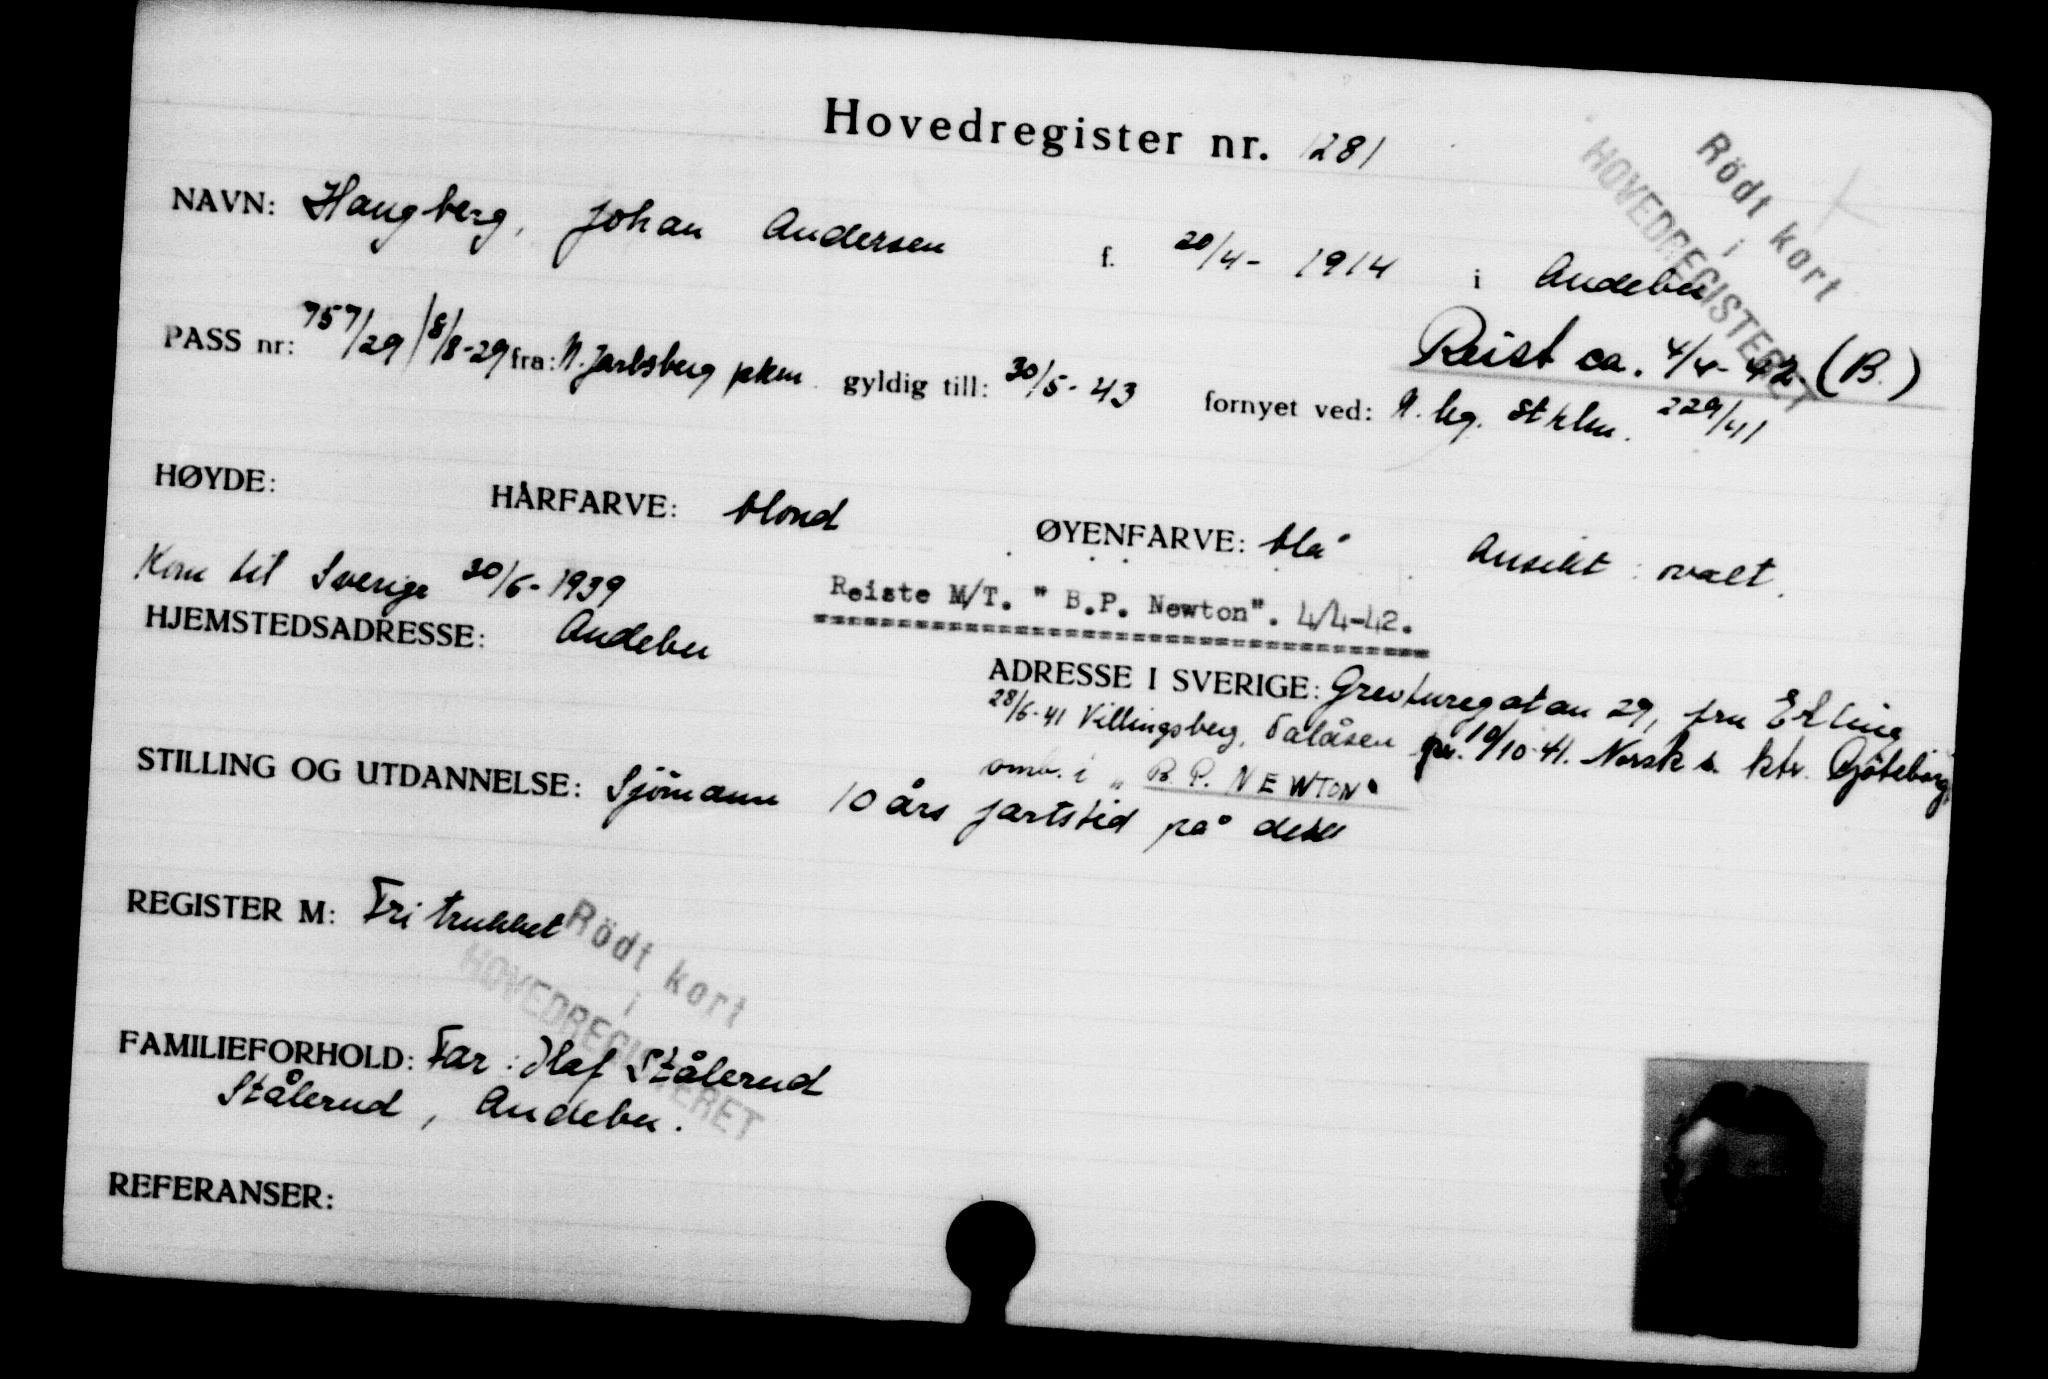 Hovedregister nr. 1281
Rödt kort
i
HOVEDREGISTERET
NAVN: Haugberg, Johan Andersen f. 20/4- 1914 i Andebu
Reist ca. 4/4-42 (B.)
PASS nr: 757/29 8/8-29 fra: N. Jarlsberg pkm gyldig till: 30/5-43 fornyet ved: N. leg. Sthlm. 229/41
HØYDE: HÅRFARVE: blond ØYENFARVE: blå Ansikt: ovalt.
Kom til Sverige 30/6-1939
Reiste M/T. "B.P. Newton". 4/4-42.
HJEMSTEDSADRESSE: Andebu
ADRESSE I SVERIGE: Grevturegatan 29, fru
28/6-41 Villingsberg, 10/10-41. Norsk s. ktr. Göteborg.
omb. i "B.P. NEWTON"
STILLING OG UTDANNELSE: Sjömann 10 års fartstid på dekk
REGISTER M: Fritrukket
Rödt kort
i
HOVEDREGISTERET
FAMILIEFORHOLD: Far: Olaf Stålerud
Stålerud, Andebu.
REFERANSER: